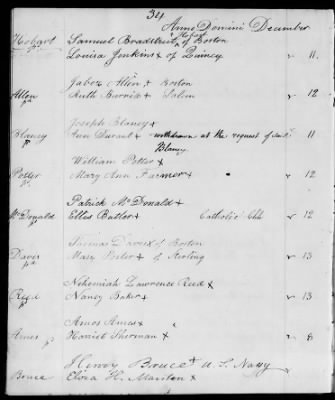 34
Anno Domini December
Hobart Samuel Bradstreet Hobart of Boston
Louisa Jenkins + of Quincy " 11.
Jabez Allen + Boston
Allen Ruth Burrill + Salem " 12
Joseph Blaney +
Blaney Ann Durant + withdrawn at the request of said " 11
Blaney
William Potter +
Potter Mary Ann Farmer + " 12
Patrick McDonald +
McDonald Ellen Butler + Catholic " 12
Thomas Davis + of Boston
Davis Mary + of " 13
Nehemiah Lawrence Reed +
Reed Nancy Baker + " 13
Amos Ames +
Ames Harriet Sherman + " 8
Henry Bruce + U. S. Navy
Bruce H. Manton +